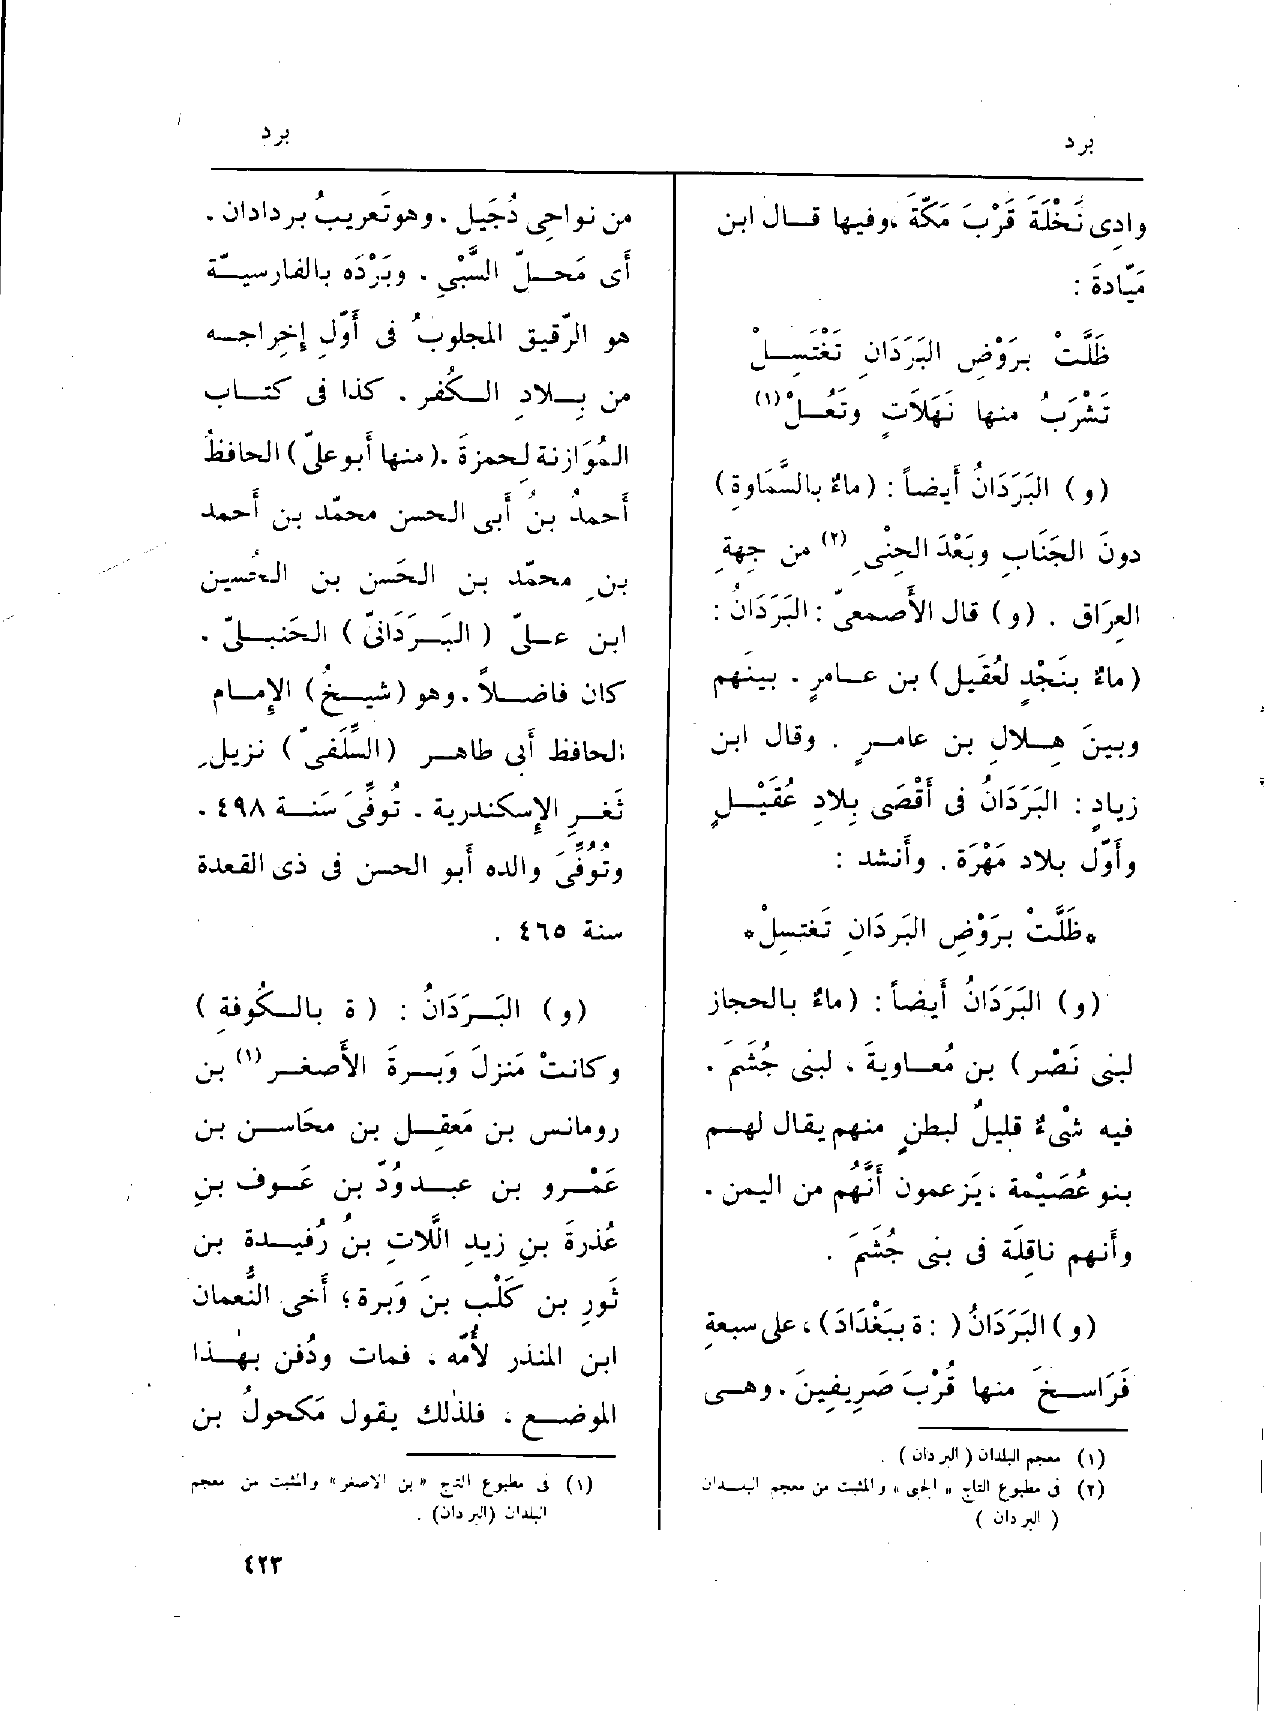 برد
وادى نَخْلَةَ قَرْبَ مَكّةَ ،وفيها قــال ابن
مَيّادةَ :
ظَلَّتْ بِرَوْضِ البَرَدَانِ تَغْتَسِــلْ
تَشْرَبُ منها نَهَلاَتٍ وتَعُــلْ(١)
(و) البَرَدَانُ أَيضاً : (ماءٌ بالسَّمَاوةِ)
دونَ الجَنَابِ وبَعْدَ الحِنْىِ (٢) من جِهةِ
العِرَاقِ . (و) قال الأَصمعىّ : البَرَدَانُ :
(ماءٌ بنَجْدٍ لعُقَيلِ) بن عــامرٍ . بينهم
وبينَ هِــلالِ بن عامــرٍ . وقال ابن
زيادٍ : البَرَدَانُ فى أَقْصَى بِلادِ عُقَيْــلٍ
وأَوّل بلاد مَهْرَةَ . وأَنشد :
*ظَلَّتْ بَروْضِ البَردَانِ تَغتسِلْ*
(و) البَرَدَانُ أَيضاً : (ماءٌ بالحجاز
لبنى نَصْر) بن مُعــاويةَ ، لبنى جُشَمَ .
فيه شىْءٌ قليلٌ لبطنٍ منهم يقال لهــم
بنو عُصَيْمة ، يَزعمون أَنَّهُم من اليمن .
وأَنهم ناقِلَة فى بنى جُشَمَ .
(و) البَرَدَانُ ( : ة ببَغْدَادَ) ، على سبعةِ
فَرَاســخَ منها قُرْبَ صَرِيفِينَ . وهــى
(١) معجم البلدان ( البردان ) .
(٢) فى مطبوع التاج « الجى » والمثبت من معجم البلــدان
( البردان )
برد
من نواحِى دُجَيلٍ . وهو تَعريبُ بردادان .
أَى مَحــلّ السَّبْىِ . وبَرْدَه بالفارسيــّة
هو الرّقيق المجلوبُ فى أَوّلِ إِخراجــه
من بِــلادِ الــكُفر . كذا فى كتــاب
المُوَازنة لحمزةَ .(منها أَبو علىّ) الحافظُ
أَحمدُ بنُ أَبى الحسن محمّد بن أَحمد
بنِ محمّد بن الحَسن بن الحُسين
ابن عــلىّ ( البَــرَدَانىّ ) الحَنبــلىّ .
كان فاضــلاً . وهو (شيــخُ) الإِمــام
الحافظ أَبى طاهــر (السِّلَفىّ) نزيلِ
ثَغــرِ الإِسكندرية . تُوفِّىَ سَنــة ٤٩٨ .
وتُوُفِّىَ والده أَبو الحسن فى ذى القعدة
سنة ٤٦٥ .
(و) البَــرَدَانُ : (ة بالــكُوفةِ )
وكانتْ مَنزلَ وَبــرةَ الأَصغــر(١) بن
رومانس بن مَعقِــل بن محَاســن بن
عَمْــرو بن عبــدوُدّ بن عَــوف بنِ
عُذرةَ بنِ زيدِ اللاّتِ بنُ رُفيــدة بن
ثَورِ بن كَلْب بنَ وَبرة ؛ أَخى النُّعمان
ابن المنذر لأُمّه ، فمات ودُفن بهــذا
الموضــع ، فلذلك يقول مَكحولُ بن
(١) فى مطبوع التاج « بن الأصغر » والمثبت من معجم
البلدان (البردان) .
٤٢٣